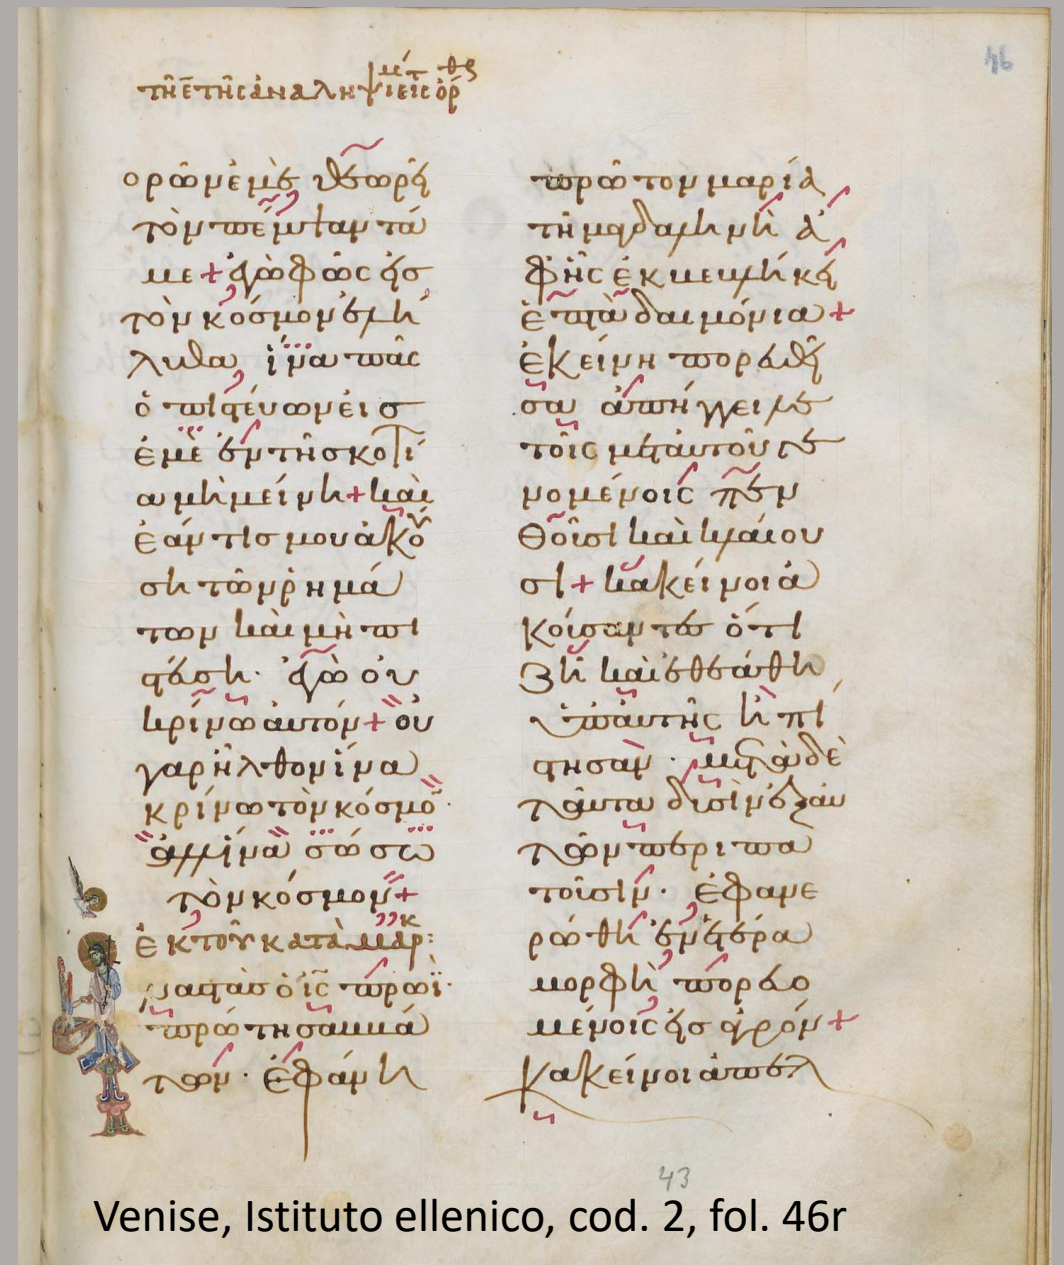 46
τῆ ε̄ τῆς ἀναλήψι εἰς ὄρ
ορῶν ἐμὲ θεωρεῖ
τὸν πέμψαντά
με + ἐγὼ φῶς εἰσ
τὸν κόσμον ἐλή
λυθα, ἵνα πᾶς
ὁ πιστέυων εἰσ
ἐμὲ ἐν τῆ σκοτί
α μὴ μείνη + καὶ
ἐάν τισ μου ἀκού
ση τῶν ῥημά
των καὶ μὴ πι
στέυση· ἐγὼ οὐ
κρίνω ἀυτόν + οὐ
γαρ ἦλθον ἵνα
κρίνω τὸν κόσμον·
ἀλλ ἵνα σώσω
τὸν κόσμον +
ἐκ τοῦ κατὰ μάρκ:
ἀναστὰσ ὁ ἰ̅ς̅ πρωῒ·
πρώτη σαμμά
των· ἐφάνη
πρῶτον μαρία
τῆ μαγδαληνῆ ἀ
φ ἧς ἐκβεβλήκει
ἑπτὰ δαιμόνια +
ἐκείνη πορευθεῖ
σα ἀπήγγειλε
τοῖς μετ ἀυτοῦ γε
νομένοις πεν
θοῦσι καὶ κλάιου
σι + κακείνοι ἀ
κούσαντες ὅτι
ζῆ καὶ ἐθεάθη
ὑπ ἀυτῆς ἠπί
στησαν· μετὰ δὲ
ταῦτα δυσὶν ἐξ ἀυ
τῶν περιπα
τοῦσιν· ἐφανε
ρώθη ἐν ἑτέρα
μορφῆ πορευο
μένοις εἰσ ἀγρόν +
κακείνοι ἀπελ
43
Venise, Istituto ellenico, cod. 2, fol. 46r